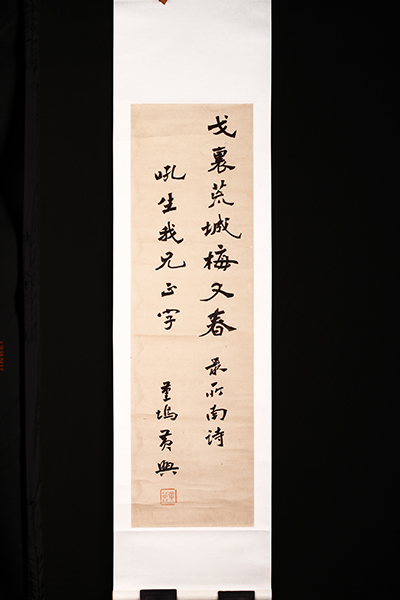 戈裏荒城梅又春 录所南诗
吼生我兄正字
堇塢黃興